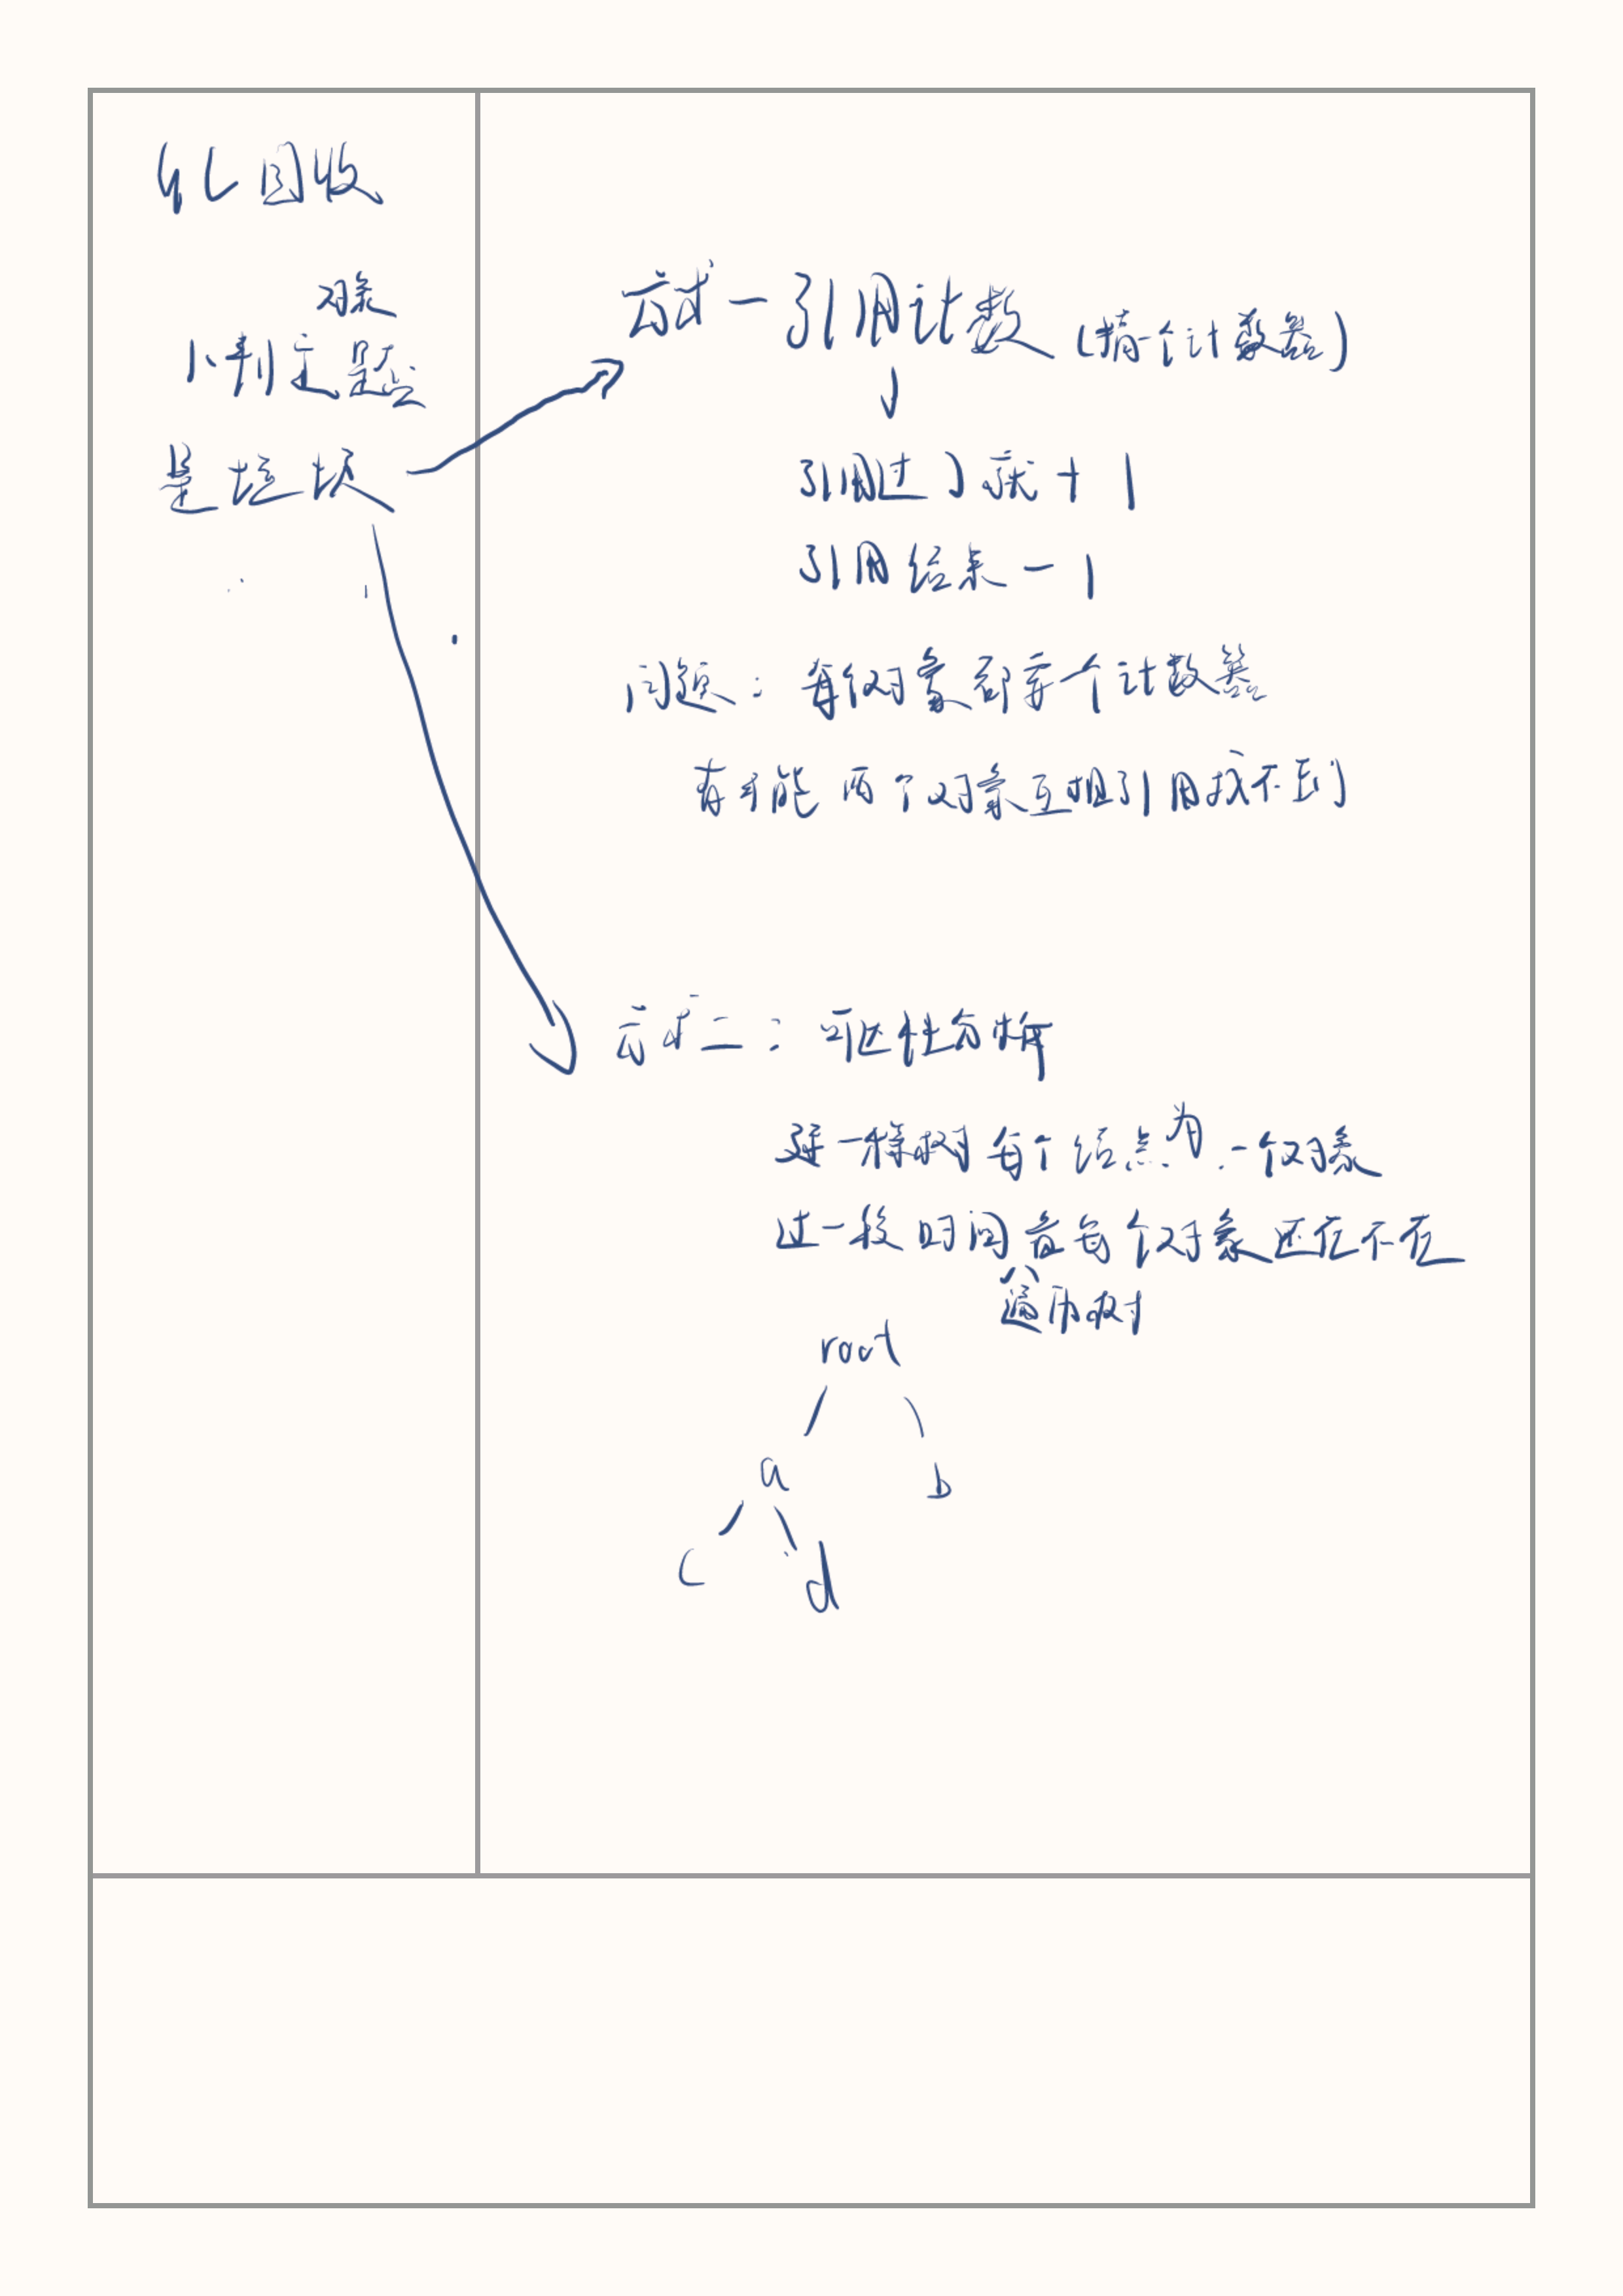 GC 回收
对象
1、判定是否
是垃圾
方式一 引用计数 (搞一个计数器)
引用过了就+1
引用结束-1
问题: 每个对象都弄个计数器
有可能两个对象互相引用找不到
方式二: 可达性分析
建一棵树 每个结点为一个对象
过一段时间 看每个对象还在不在
遍历树
root
a b
c d